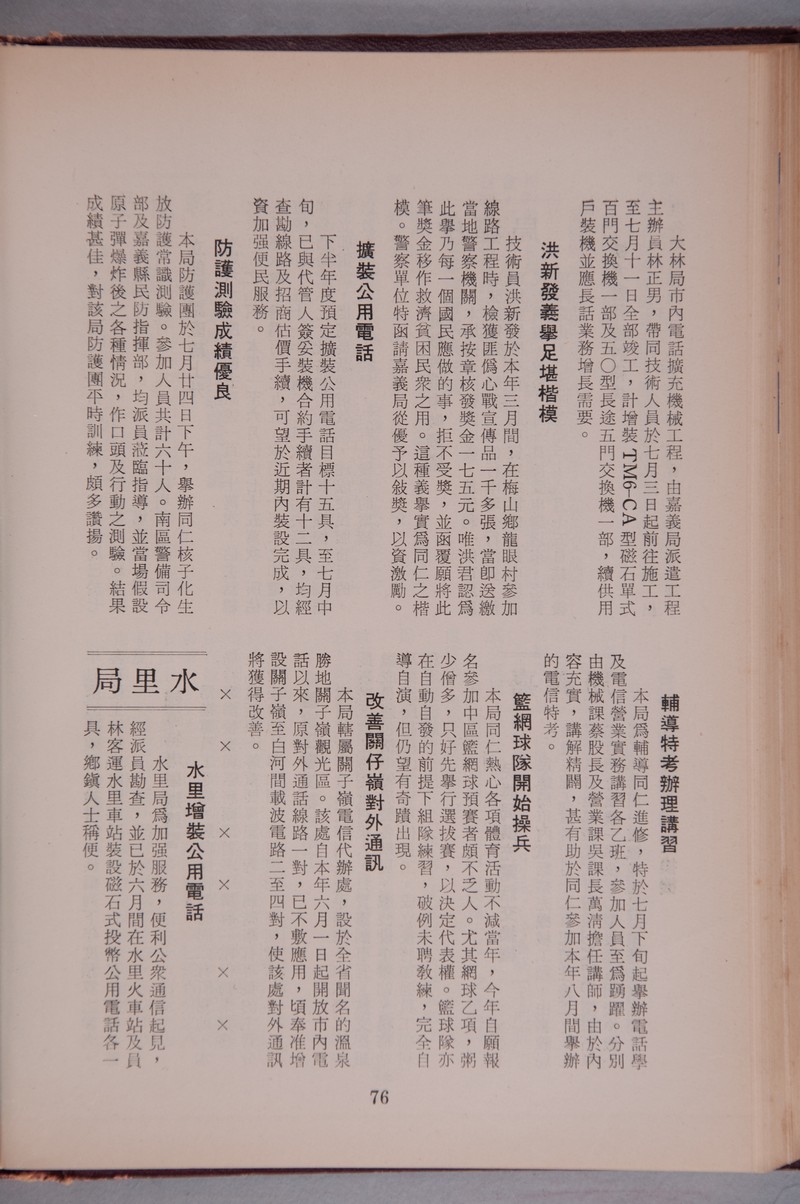 大林局市內電話擴充機械工程，由嘉義局派遣工程
主辦員林正男，帶同技術人員於七月三日起前往施工，
至七月十一日全部竣工，計增裝TM6-CA型磁石單式
百門交換機一部及五〇型長途五門交換機一部，續供用
戶裝機並應長話業務增長需要。
洪新發義舉足堪楷模
技術員洪新發於本年三月間，在梅山鄉龍眼村參加
線路工程時，檢獲匪僞心戰宣傳品一千多張，當卽送繳
當地警察機關，承按章核發獎金一七五元。唯洪君認爲
此舉乃每一個國民應做的事，拒不受獎，並函覆願將此
筆獎金移作救濟貧困民衆之用。這種義舉實爲同仁之楷
模。警察單位特函請嘉義局從優予以敍獎，以資激勵。
擴裝公用電話
下半年度預定擴裝公用電話目標十五具，至七月中
旬，已與代管人簽妥裝機合約手續者計有十二具，均經
查勘線路及招商估價手續，可望於近期內裝設完成，以
資加强便民服務。
防護測驗成績優良
本局防護團於七月廿四日下午，舉辦同仁核子化生
放防護常識測驗。參加人員共計六十人。南區警備司令
部及嘉義縣民防指揮部，均派員蒞臨指導，並當場假設
原子彈爆炸後之各種情況，作口頭及行動之測驗。結果
成績甚佳，對該局防護團平時訓練，頗多讚揚。
輔導特考辦理講習
本局爲輔導同仁進修，特於七月下旬起舉辦電話學
及電信營業實務講習各乙班，參加人員至爲踴躍。分別
由機械課蔡股長及營業課吳課長萬清擔任講師，由於內
容充實，講解精闢，甚有助於同仁參加本年八月間舉辦
的電信特考。
籃網球隊開始操兵
本局同仁熱心各項體育活動不減當年，今年自願報
名參加中區籃網球預賽者頗不乏人。尤其網球乙項，粥
少僧多，只好先舉行選拔賽，以決定代表權。籃球隊亦
在自動自發的前提下組隊練習，破例未聘敎練，完全自
導自演，但仍望有奇蹟出現。
改善關仔嶺對外通訊
本局轄屬關子嶺電信代辦處，設於全省聞名的溫泉
勝地關子嶺觀光區。該處自本年六月一日起開放市內電
話以來，原對外通話線路一對，已不敷應用，頃奉准增
設關子嶺至白河間載波電路二至四對，使該處對外通訊
將獲得改善。
× × × × × ×
水里局
水里增裝公用電話
水里局爲加强服務，便利公衆通信起見，
經派員勘查，並已於六月間在水里火車站及員
林客運水里車站裝設磁石式投幣公用電話各一
具，鄉鎭人士稱便。
76